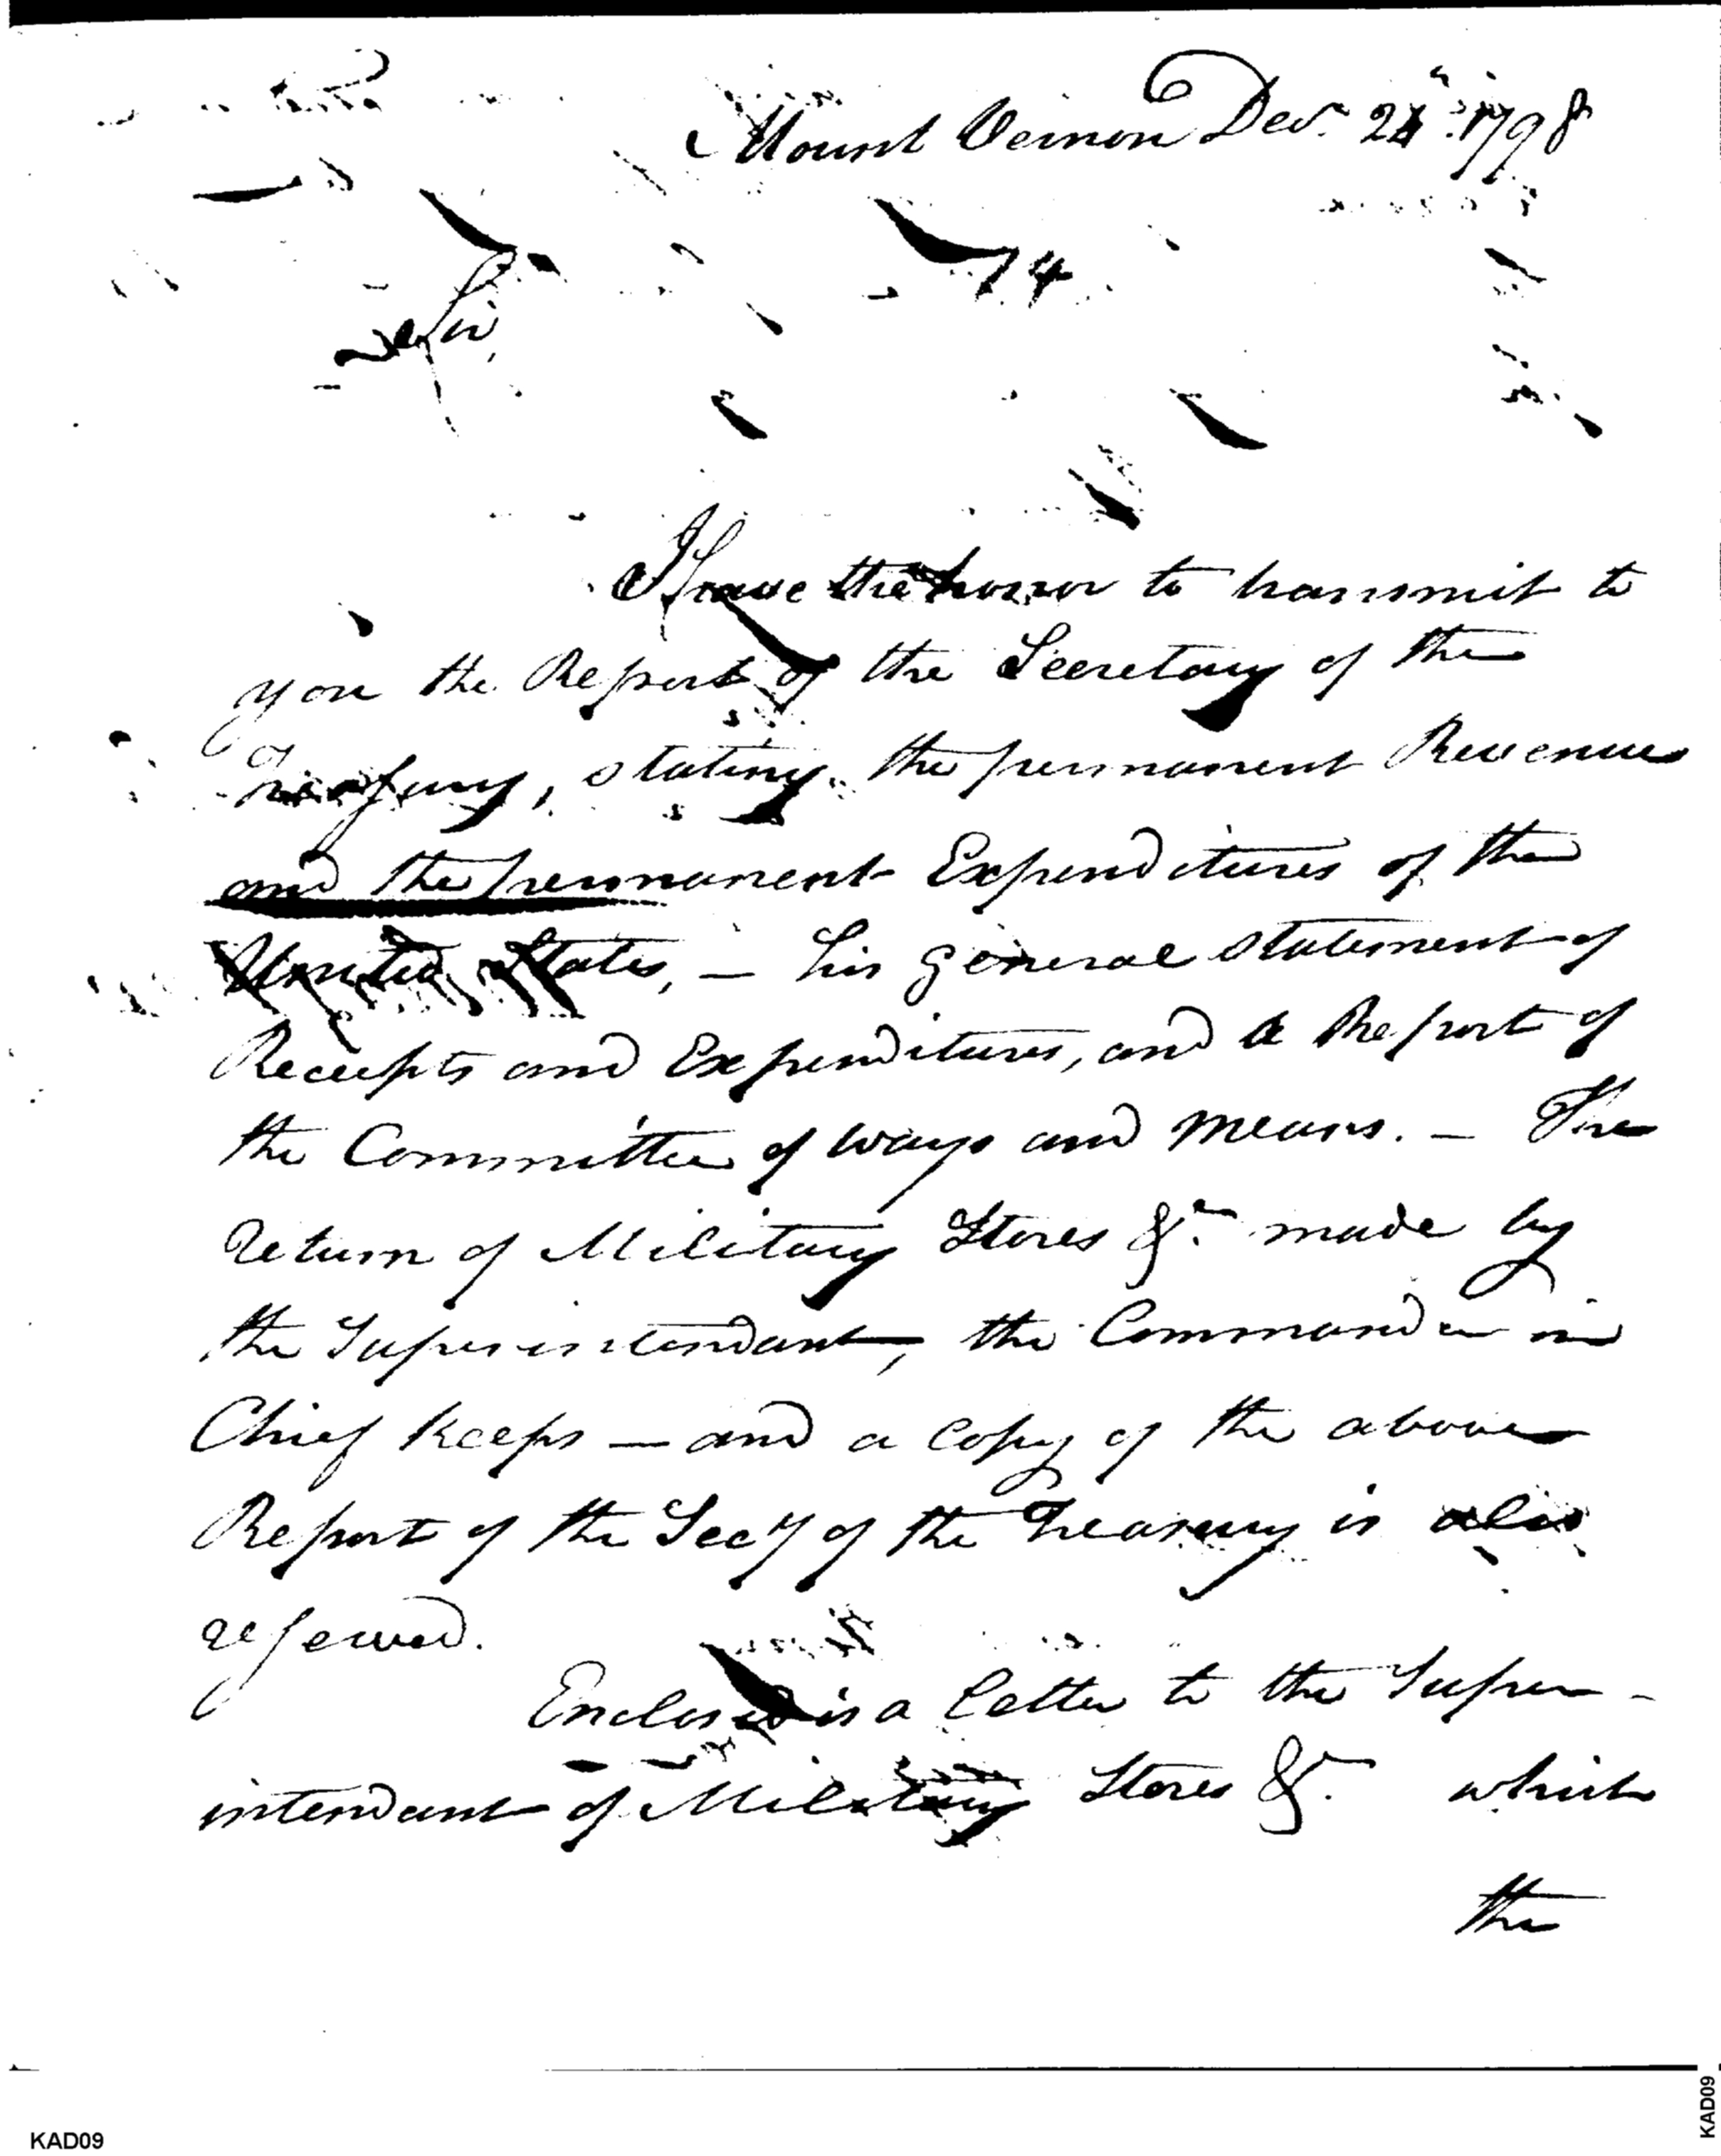 Mount Vernon Decr. 24th. 1798
14
Sir,
I have the honor to transmit to
you the Report of the Secretary of the
Treasury, stating the permanent Revenue
and the permanent Expenditures of the
United States, – his general statement of
Receipts and Expenditures, and a Report of
the Committee of ways and means. – The
return of Military Stores &ca. made by
the Superintendant, the Commander in
Chief keeps – and a copy of the above
Report of the Secy of the Treasury is also
reserved.
Enclosed is a letter to the Super-
intendant of Military Stores &c. which
the
KAD09
KAD09